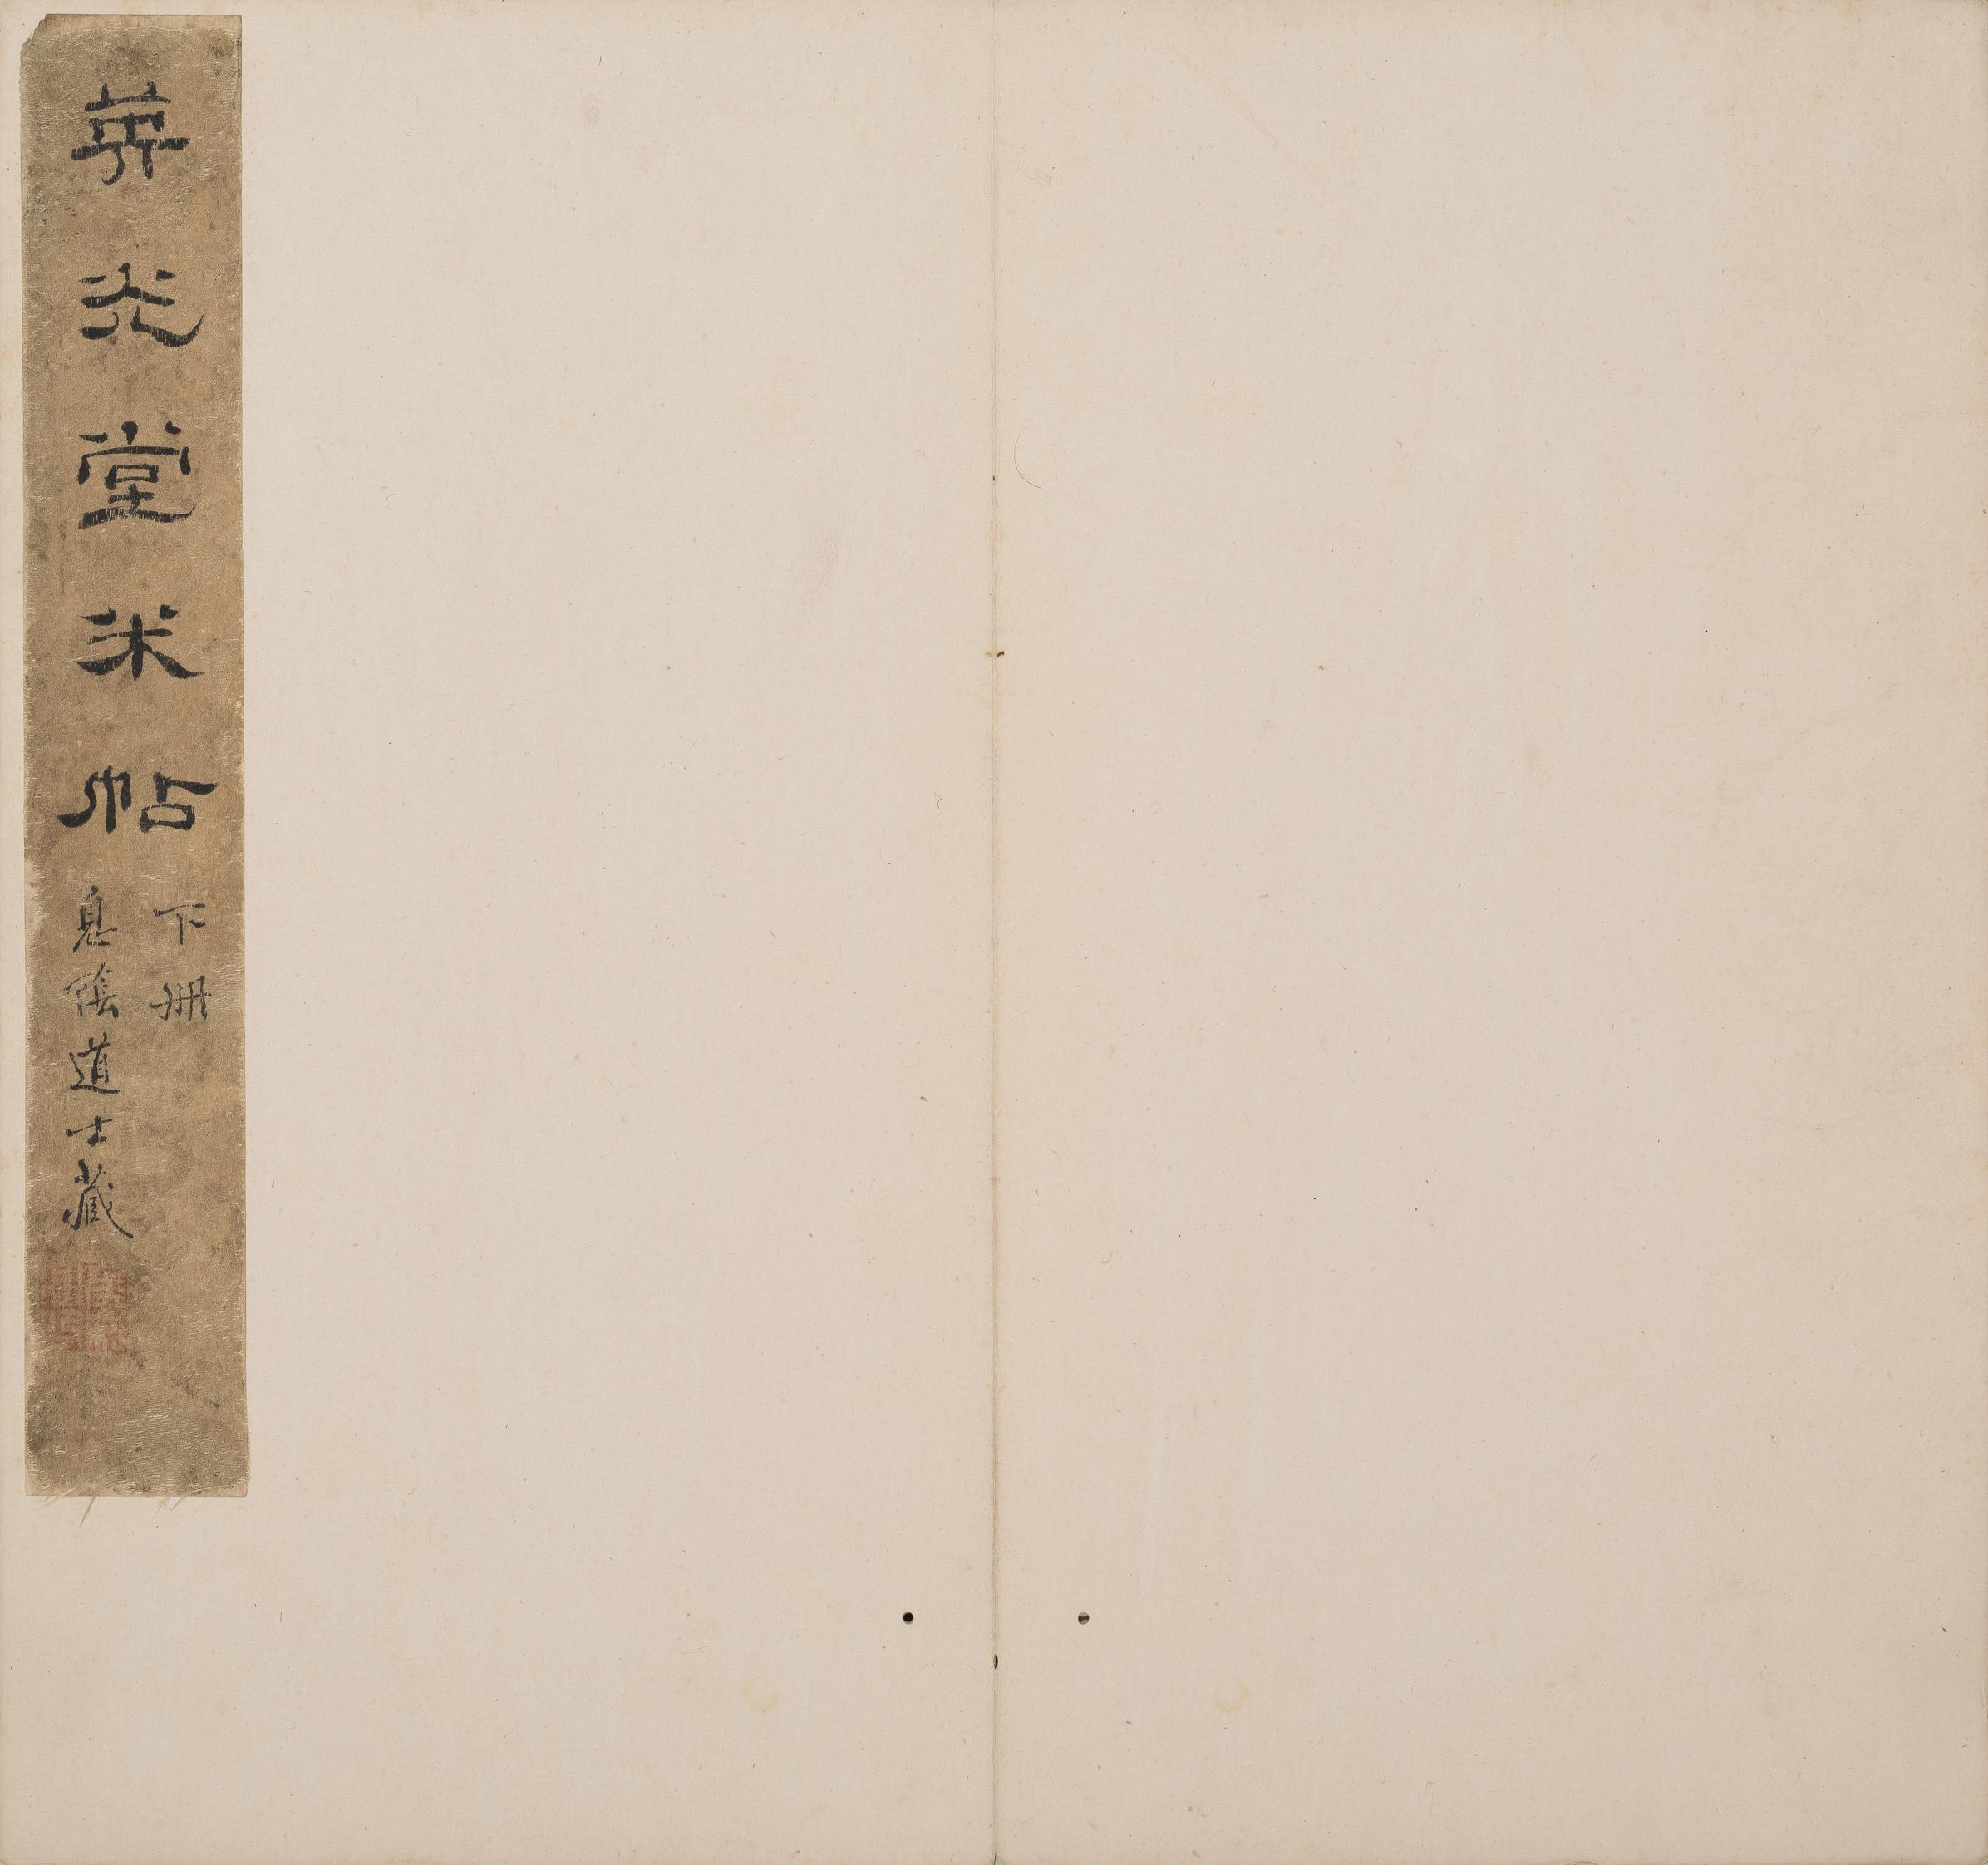 英光堂米帖
下冊
息陰道士藏